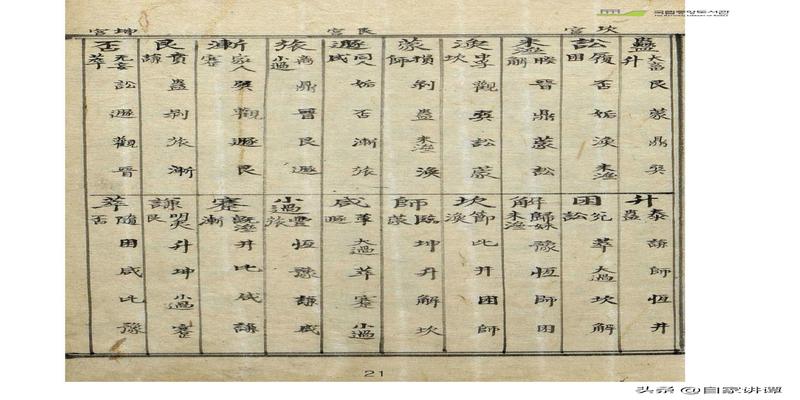 坎宮
艮宮
坤宮
蠱 大畜 升 艮 蒙 鼎 巽
訟 履 困 否 姤 渙 未濟
未濟 睽 解 晉 鼎 蒙 訟
渙 中孚 坎 觀 巽 訟 蒙
蒙 損 師 剝 蠱 未濟 渙
遯 同人 咸 姤 否 漸 旅
旅 離 小過 鼎 晉 艮 遯
漸 家人 蹇 巽 觀 遯 艮
艮 賁 謙 蠱 剝 旅 漸
否 无妄 萃 訟 遯 觀 晉
升 泰 蠱 謙 師 恆 井
困 兌 訟 萃 大過 坎 解
解 歸妹 未濟 豫 恆 師 困
坎 節 渙 比 井 困 師
師 臨 蒙 坤 升 解 坎
咸 革 遯 大過 萃 蹇 小過
小過 豐 旅 恆 豫 謙 咸
蹇 既濟 漸 井 比 咸 謙
謙 明夷 艮 升 坤 小過 蹇
萃 隨 否 困 咸 比 豫
21
头条 @自家讲谭